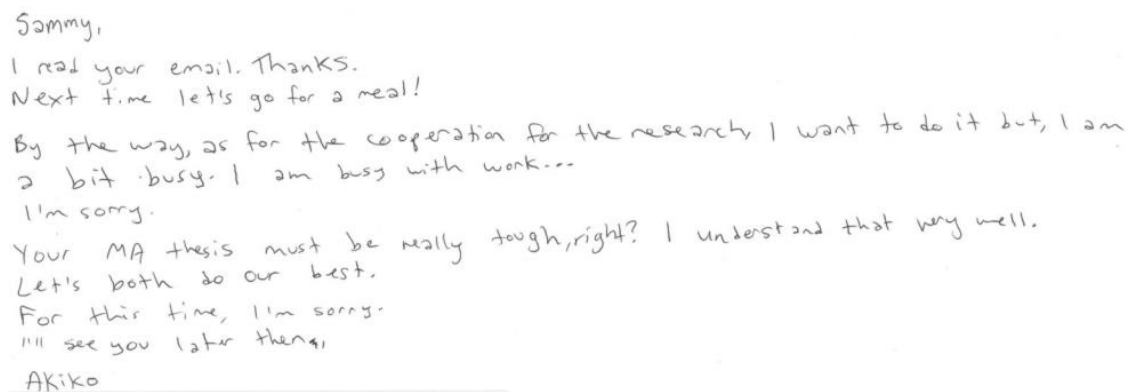 Sammy,
I read your email. Thanks.
Next time let's go for a meal!
By the way, as for the cooperation for the research, I want to do it but, I am
a bit busy. I am busy with work...
I'm sorry.
Your MA thesis must be really tough, right? I understand that very well.
Let's both do our best.
For this time, I'm sorry.
I'll see you later then,
Akiko